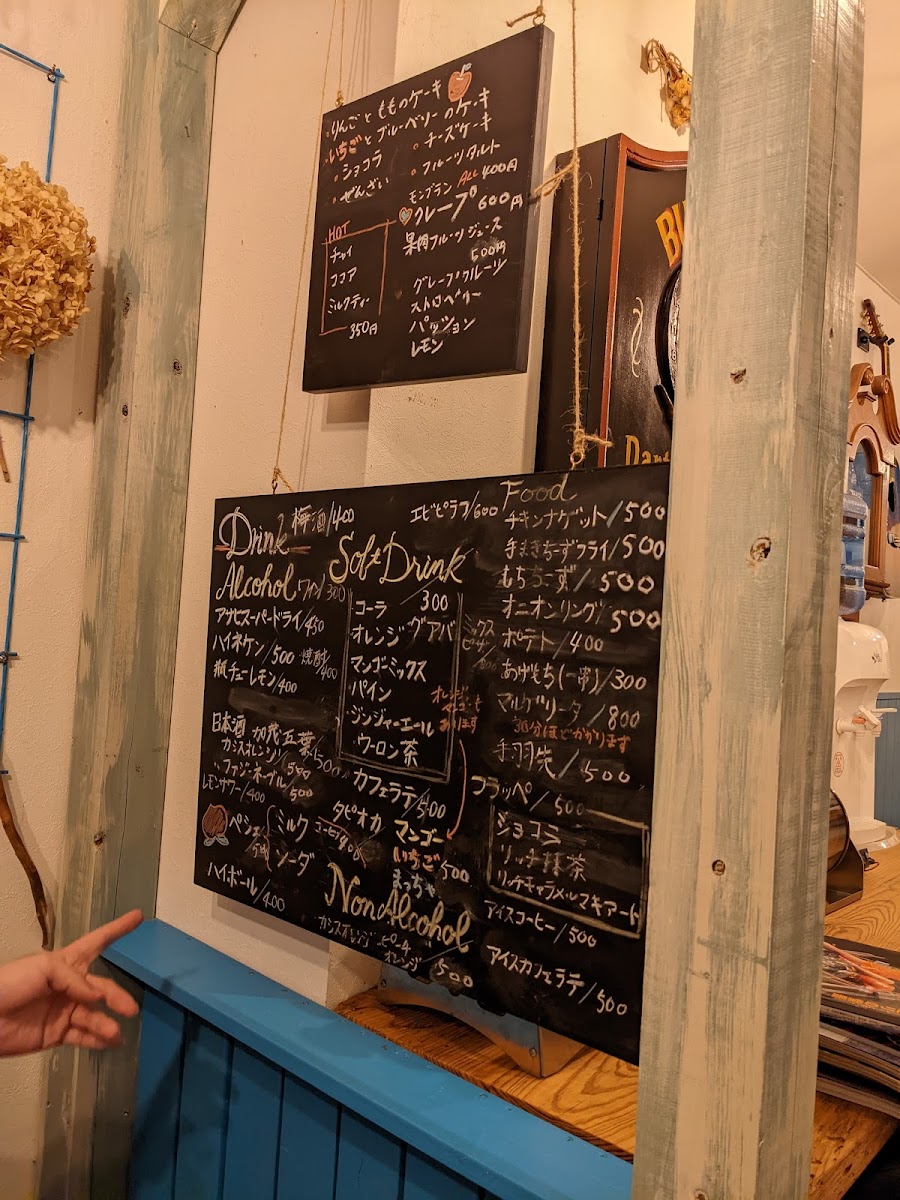 りんごともものケーキ
いちごとブルーベリーのケーキ
ショコラ
チーズケーキ
ぜんざい
フルーツタルト
モンブラン ALL 400円
クレープ 600円
HOT
チャイ
ココア
ミルクティー
350円
果肉フルーツジュース
500円
グレープフルーツ
ストロベリー
パッション
レモン
Drink 梅酒/400
Alcohol ワイン/300
アサヒスーパードライ/450
ハイネケン/500 焼酎/400
瓶チューレモン/400
日本酒 加茂五葉/500
カシスオレンジ/500
ファジーネーブル/500
レモンサワー/400
ペシェ
ミルク
ソーダ
ハイボール/400
Soft Drink
300
コーラ
オレンジ グアバ
マンゴーミックス
パイン
ジンジャーエール
ウーロン茶
オレンジ
カフェラテ/500
タピオカ
マンゴー
いちご 500
まっちゃ
NonAlcohol
カシスオレンジ ピーチ
オレンジ /500
エビピラフ/600
Food
チキンナゲット/500
手まきちーずフライ/500
もちちーず/500
オニオンリング/500
ミックス
ピザ/800
ポテト/400
あげもち(一串)/300
マルゲリータ/800
30分ほどかかります
手羽先/500
フラッペ/500
ショコラ
リッチ抹茶
リッチキャラメルマキアート
アイスコーヒー/500
アイスカフェラテ/500